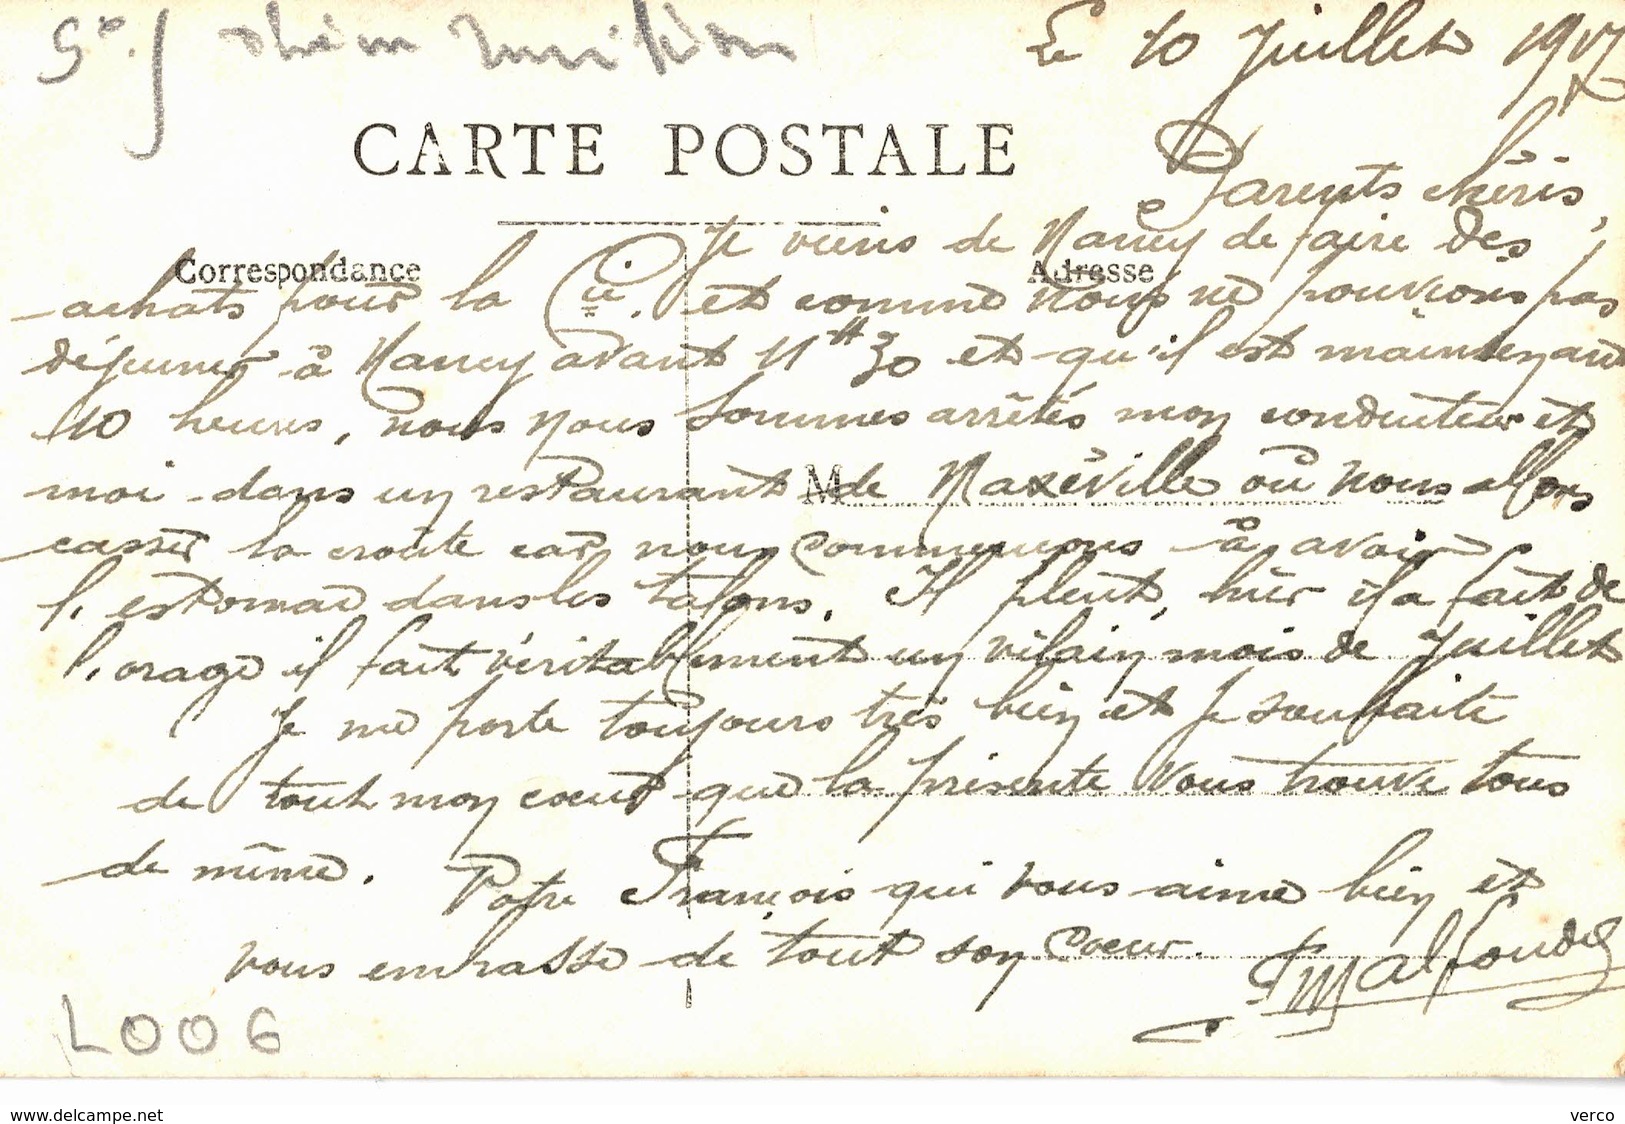 Le 10 Juillet 1917
CARTE POSTALE
Parents chéris,
Correspondance
Adresse
Je viens de Nancy de faire des
achats pour la Cie. et comme nous ne pouvions pas
déjeuner à Nancy avant 11H30 et qu'il est maintenant
10 heures, nous nous sommes arrêtés mon conducteur et
moi dans un restaurant M de Maxéville où nous allons
casser la croûte car nous commençons à avoir
l'estomac dans les talons. Il pleut, hier il a fait de
l'orage il fait véritablement un vilain mois de Juillet
Je me porte toujours très bien et je souhaite
de tout mon coeur que la présente vous trouve tous
de même. Votre François qui vous aime bien et
vous embrasse de tout son Coeur.
FMalfoudel
L006
www.delcampe.net
verco